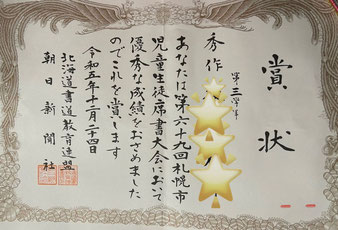 賞状
秀作
第三学年
あなたは第六十九回札幌市
児童生徒席書大会において
優秀な成績をおさめました
のでこれを賞します
令和五年十二月二十四日
北海道書道教育連盟
朝日新聞社